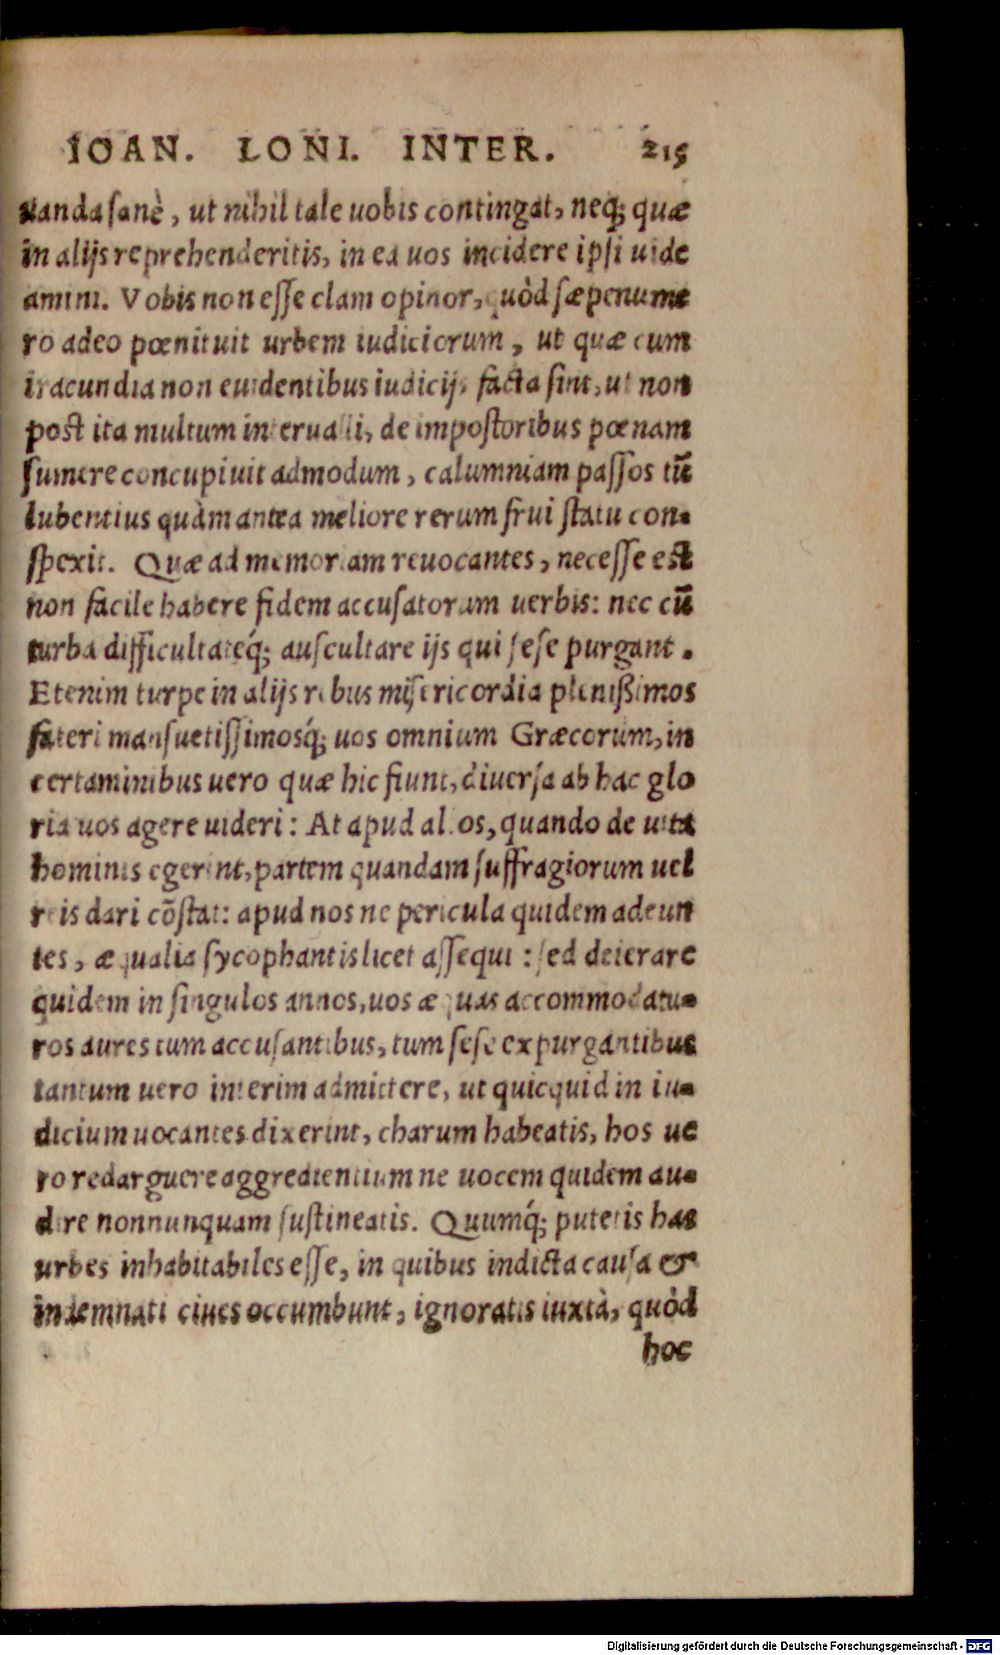 IOAN. LONI. INTER. 215
uanda sanè, ut nihil tale uobis contingat, neq; quæ
in alijs reprehenderitis, in ea uos incidere ipsi uide
amini. Vobis non esse clam opinor, quòd sæpenume
ro adeo pœnituit urbem iudiciorum, ut quæ cum
iracundia non euidentibus iudicijs facta sint, ut non
post ita multum interualli, de impostoribus pœnam
sumere concupiuit admodum, calumniam passos tũ
lubentius quàm antea meliore rerum frui statu con-
spexit. Quæ ad memoriam reuocantes, necesse est
non facile habere fidem accusatorum uerbis: nec cũ
turba difficultateq́; auscultare ijs qui sese purgant.
Etenim turpe in alijs rebus misericordia plenißimos
fateri mansuetissimosq́; uos omnium Græcorum, in
certaminibus uero quæ hic fiunt, diuersa ab hac glo
ria uos agere uideri: At apud alios, quando de uita
hominis egerint, partem quandam suffragiorum uel
reis dari cõstat: apud nos ne pericula quidem adeun
tes, æqualia sycophantis licet assequi: sed deierare
quidem in singulos annos, uos æquas accommodatu-
ros aures tum accusantibus, tum sese expurgantibus
tantum uero interim admittere, ut quicquid in iu-
dicium uocantes dixerint, charum habeatis, hos ue
ro redarguere aggredientium ne uocem quidem au-
dire nonnunquam sustineatis. Quumq́; putetis has
urbes inhabitabiles esse, in quibus indicta causa &
indemnati ciues occumbunt, ignoratis iuxtà, quòd
hoc
Digitalisierung gefördert durch die Deutsche Forschungsgemeinschaft - DFG